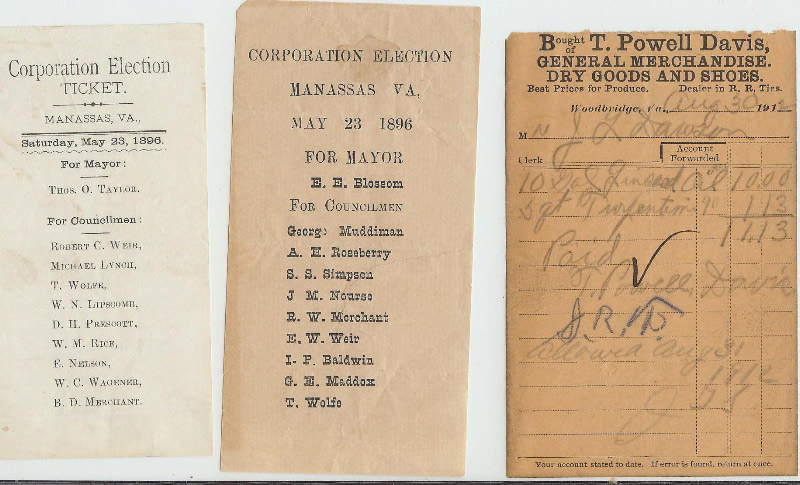 Corporation Election
TICKET.
MANASSAS, VA.,
Saturday, May 23, 1896.
For Mayor:
THOS. O. TAYLOR.
For Councilmen:
ROBERT C. WEIR,
MICHAEL LYNCH,
T. WOLFE,
W. N. LIPSCOMB,
D. H. PRESCOTT,
W. M. RICE,
E. NELSON,
W. C. WAGENER,
B. D. MERCHANT.
CORPORATION ELECTION
MANASSAS VA,
MAY 23 1896
FOR MAYOR
E. E. Blossom
FOR COUNCILMEN
George Muddiman
A. H. Roseberry
S. S. Simpson
J M. Nourse
R. W. Merchant
E. W. Weir
I- P. Baldwin
G. E. Maddox
T. Wolfe
Bought of T. Powell Davis,
GENERAL MERCHANDISE.
DRY GOODS AND SHOES.
Best Prices for Produce. Dealer in R. R. Ties.
Woodbridge, Va., Aug 30 1912
M J L Dawson
Clerk Account Forwarded
10 Gal Linseed Oil 10.00
5 qt Turpentine 90 1 13
11.13
Paid
T. Powell Davis
Allowed Aug 31
1912
Your account stated to date. If error is found, return at once.